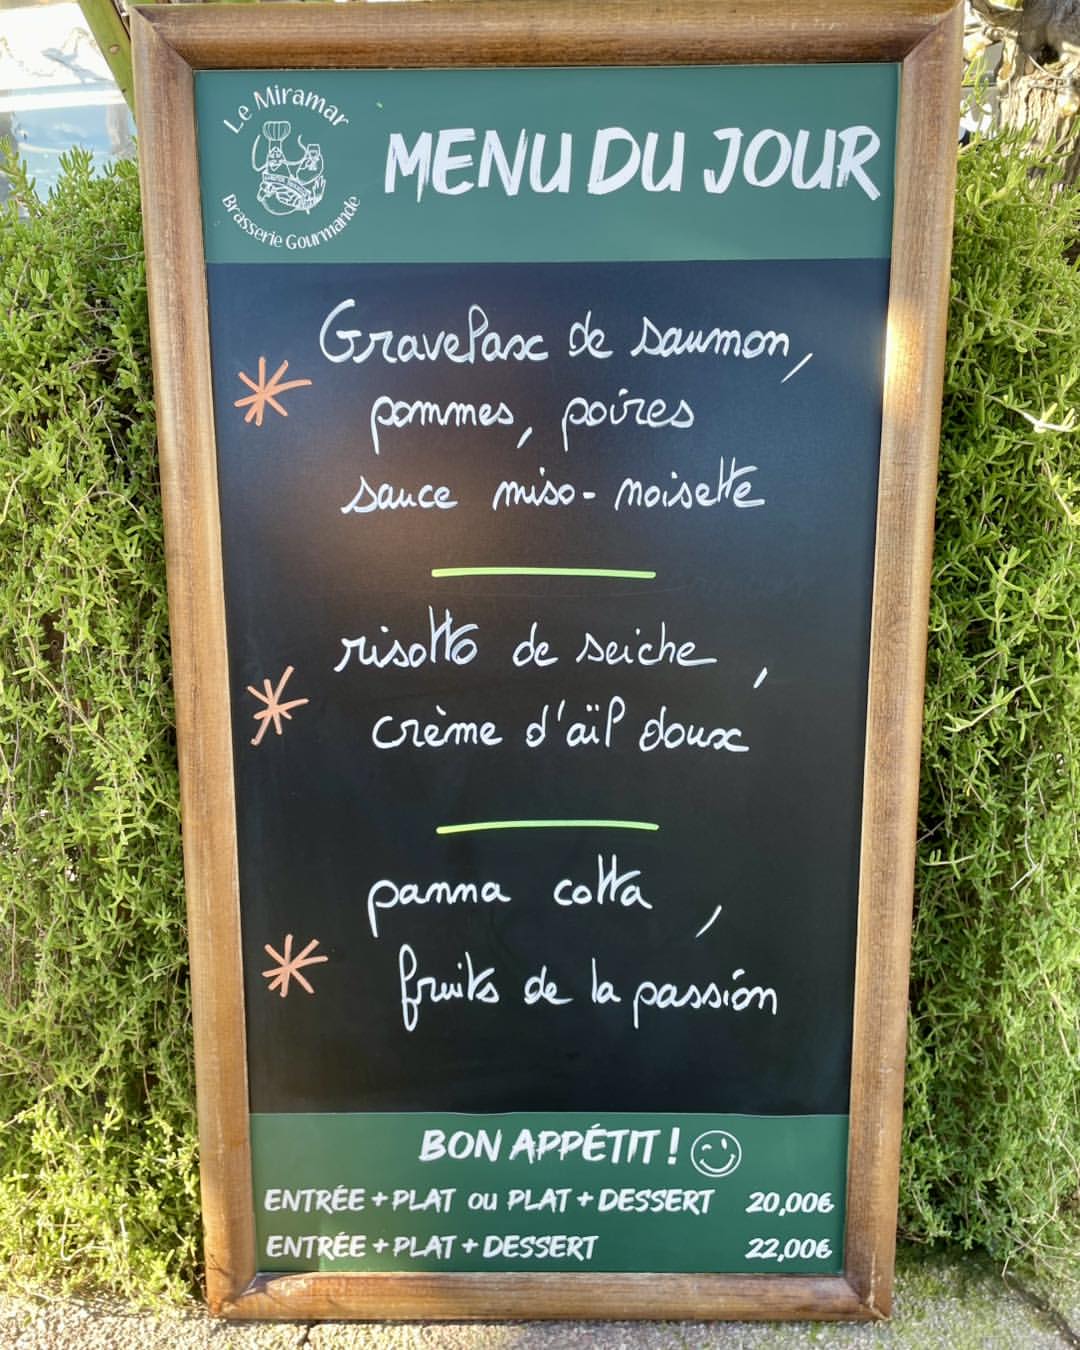 Le Miramar
Brasserie Gourmande
MENU DU JOUR
Gravelax de saumon,
pommes, poires
sauce miso-noisette
risotto de seiche,
crème d'aïl doux
panna cotta,
fruits de la passion
BON APPÉTIT !
ENTRÉE + PLAT ou PLAT + DESSERT 20,00€
ENTRÉE + PLAT + DESSERT 22,00€